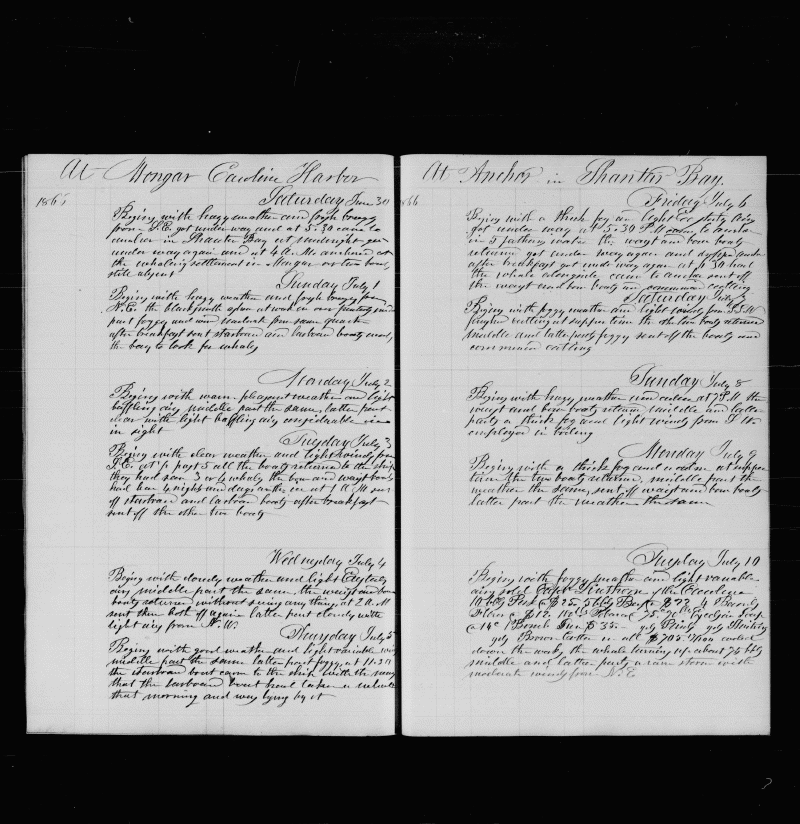 At Mongar Caroline Harbor
1866
Saturday June 30
Begins with hazy weather and fresh breezes
from S.E. got under way and at 5.30 came to
anchor in Shantar Bay at midnight got
under way again and at 4 A.M. anchored at
the whaling settlement in Mongar or two boats
still absent
Sunday July 1
Begins with hazy weather and fresh breezes from
N.E. the blacksmith ashore at work on our
part foggy and wind from same quarter
after breakfast sent starboard and larboard boats around
the bay to look for whales
Monday July 2
Begins with warm pleasant weather and light
baffling airs middle part the same, latter part
clear with light baffling airs considerable ice
in sight
Tuesday July 3
Begins with clear weather and light winds from
S.E. at ½ past 5 all the boats returned to the ship
they had seen 3 or 4 whales the bow and waist boats
had been 4 nights and days in the ice at 1 A.M sent
off starboard and larboard boats after breakfast
sent off the other two boats
Wednesday July 4
Begins with cloudy weather and light Easterly
airs middle part the same the waist and bow
boats returned without seeing any thing, at 2 A.M
sent them both off again latter part cloudy with
light airs from N.W.
Thursday July 5
Begins with good weather and light variable winds
middle part the same latter part foggy, at 11.30
the starboard boat came to the ship with the news
that the larboard boat had taken a whale
that morning and was lying by it
At Anchor in Shantar Bay.
1866
Friday July 6
Begins with a thick fog and light Easterly airs
got under way at 5.30 P.M came to anchor
in 5 fathoms water the waist and bow boats
returned got under way again and
after breakfast got under way again at 9.30 had
the whale alongside, came to anchor sent off
the waist and bow boats and commenced cutting
Saturday July 7
Begins with foggy weather and light winds from S.S.W
finished cutting at supper time the other two boats returned
middle and latter parts foggy sent off the boats and
commenced cutting
Sunday July 8
Begins with hazy weather and calm at 7 P.M the
waist and bow boats returned middle and latter
parts a thick fog and light winds from S W
employed in boiling
Monday July 9
Begins with a thick fog and calm at supper
time the two boats returned, middle part the
weather the same, sent off waist and bow boats
latter part the weather the same
Tuesday July 10
Begins with foggy weather and light variable
airs sold Capt of the
10 bbls Beef @ $25 5 bbls Pork @ $33 4 Barrels
Flour @ $12 Tobacco
@ 14c 1 Bomb Gun $35
yds Brown Cotton in all $705.
down the works, the whale turning up about 75 bbls
middle and latter parts a rain storm with
moderate winds from N.E